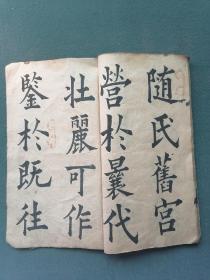 随氏舊宮
營於曩代
壯麗可作
鑒於既往